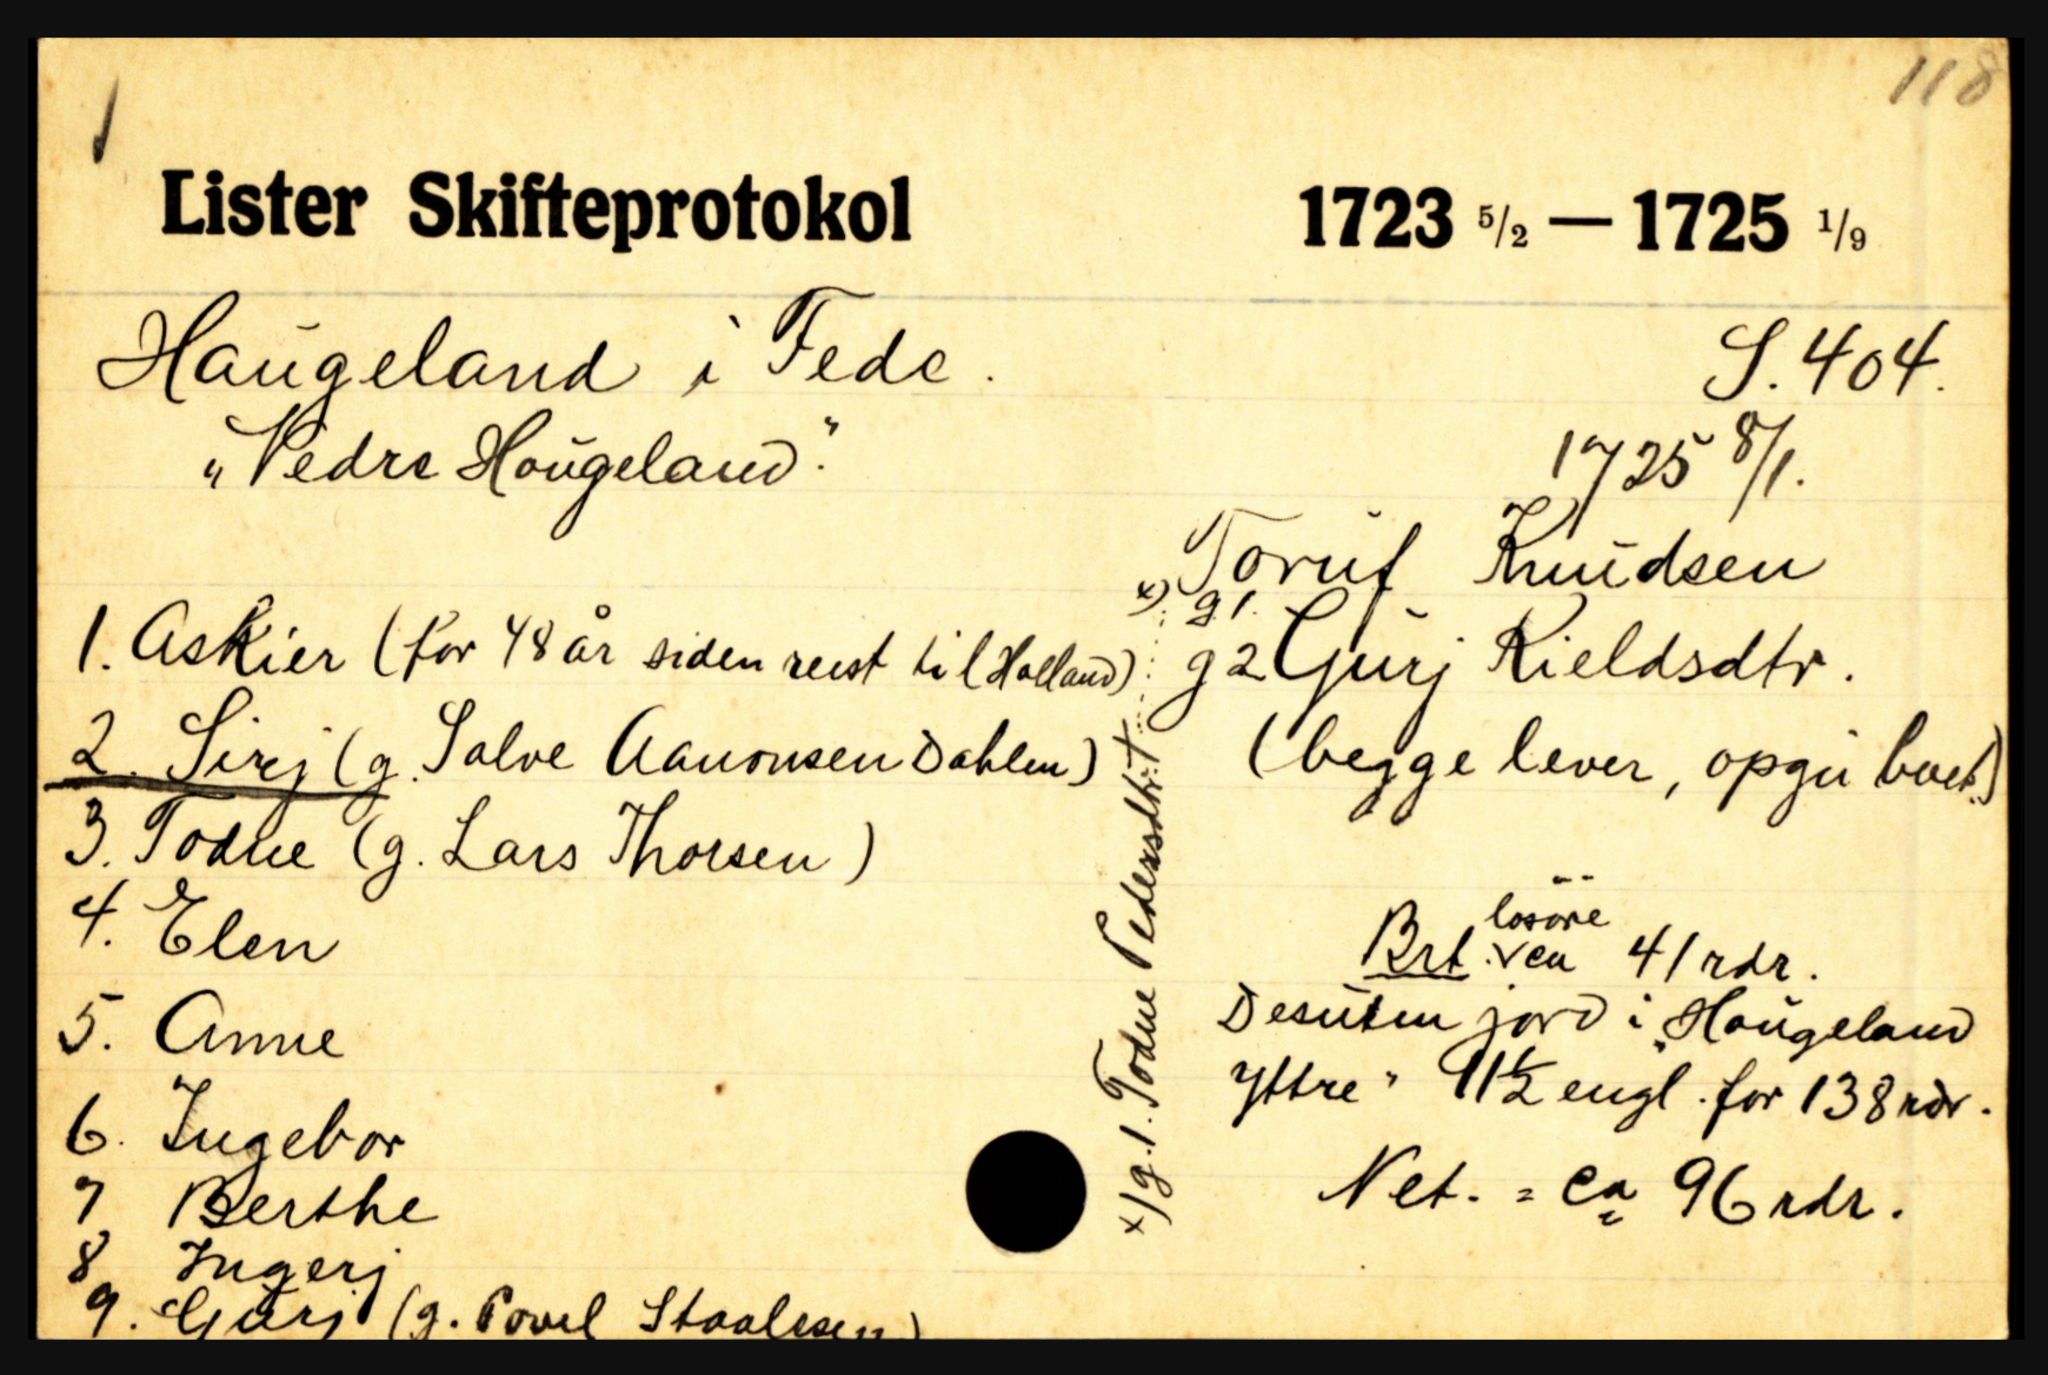 118
Lister Skifteprotokol 1723 5/2 — 1725 1/9
Haŭgeland i Fede.
S. 404.
"Nedre Hoŭgeland."
1725 8/1.
Torŭf Knŭdsen
x) g 1.
g 2 Gŭrj Kieldsdtr.
(begge lever, opgir boet.)
1. Askier (for 48 år siden reist til Holland)
2. Sirj (g. Salve Aanonsen Dahlen)
3. Todne (g. Lars Thorsen)
4. Elen
5. Anne
6. Ingebor
7 Berthe
8 Ingerj
9. Gŭrj (g. Povel Staalesen)
x) g. 1. Todne Pedersdtr. †
løsøre
Brt. ca 41 rdr.
Desŭten jord i "Hoŭgeland
Yttre" 11½ engl. for 138 rdr.
Net. = ca 96 rdr.